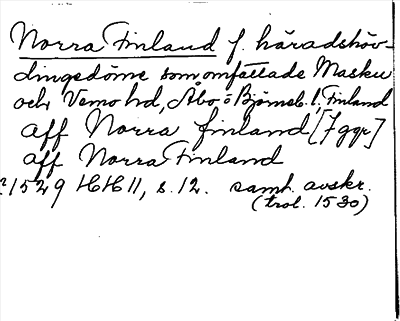 Norra Finland f. häradshöv-
dingedöme som omfattade Masku
och Vemo hd, Åbo o Björneb. l, Finland
aff Norra finland [7 ggr]
aff Norra Finland
?1529 HH II, s. 12. samt. avskr.
(trol. 1530)